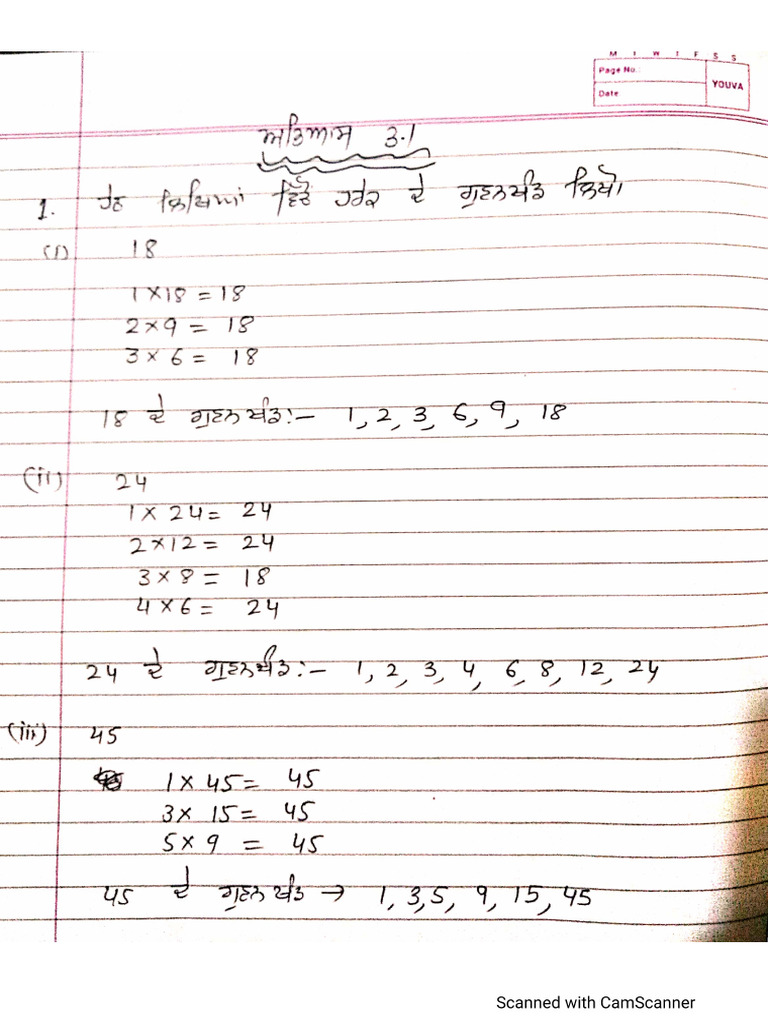 M T W T F S S
Page No.
YOUVA
Date
ਅਭਿਆਸ 3.1
1. ਹੇਠ ਲਿਖਿਆਂ ਵਿੱਚੋਂ ਹਰੇਕ ਦੇ ਗੁਣਨਖੰਡ ਲਿਖੋ।
(i) 18
1×18 = 18
2×9 = 18
3×6 = 18
18 ਦੇ ਗੁਣਨਖੰਡ:- 1, 2, 3, 6, 9, 18
(ii) 24
1×24 = 24
2×12 = 24
3×8 = 18
4×6 = 24
24 ਦੇ ਗੁਣਨਖੰਡ:- 1, 2, 3, 4, 6, 8, 12, 24
(iii) 45
1×45 = 45
3×15 = 45
5×9 = 45
45 ਦੇ ਗੁਣਨਖੰਡ → 1, 3, 5, 9, 15, 45
Scanned with CamScanner